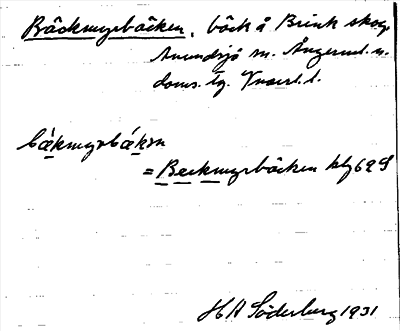 Bäckmyrbäcken, bäck å Brink skog,
Anundsjö sn. Ångerml. n.
doms. tg. Vnorrl. l.
bækmyrbækən
= Beckmyrbäcken kbg 62 S
H A Söderberg 1931